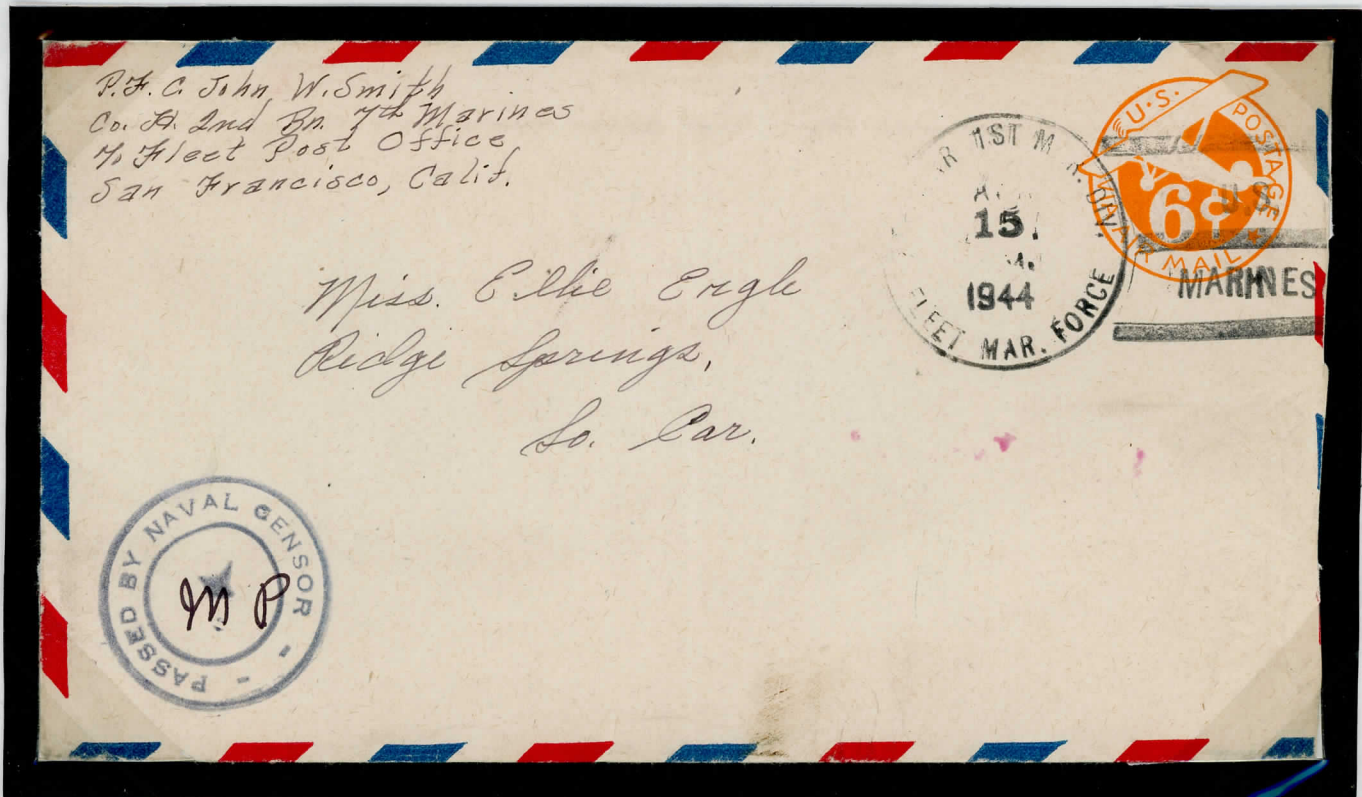 P.F.C. John W. Smith
Co. H. 2nd Bn. 7th Marines
℅ Fleet Post Office
San Francisco, Calif.
1ST MAR. DIV.
15
1944
FLEET MAR. FORCE
U.S. POSTAGE
6¢
VIA AIR MAIL
U.S.
MARINES
Miss. Ellie Ergle
Ridge Springs,
So. Car.
PASSED BY NAVAL CENSOR
MP